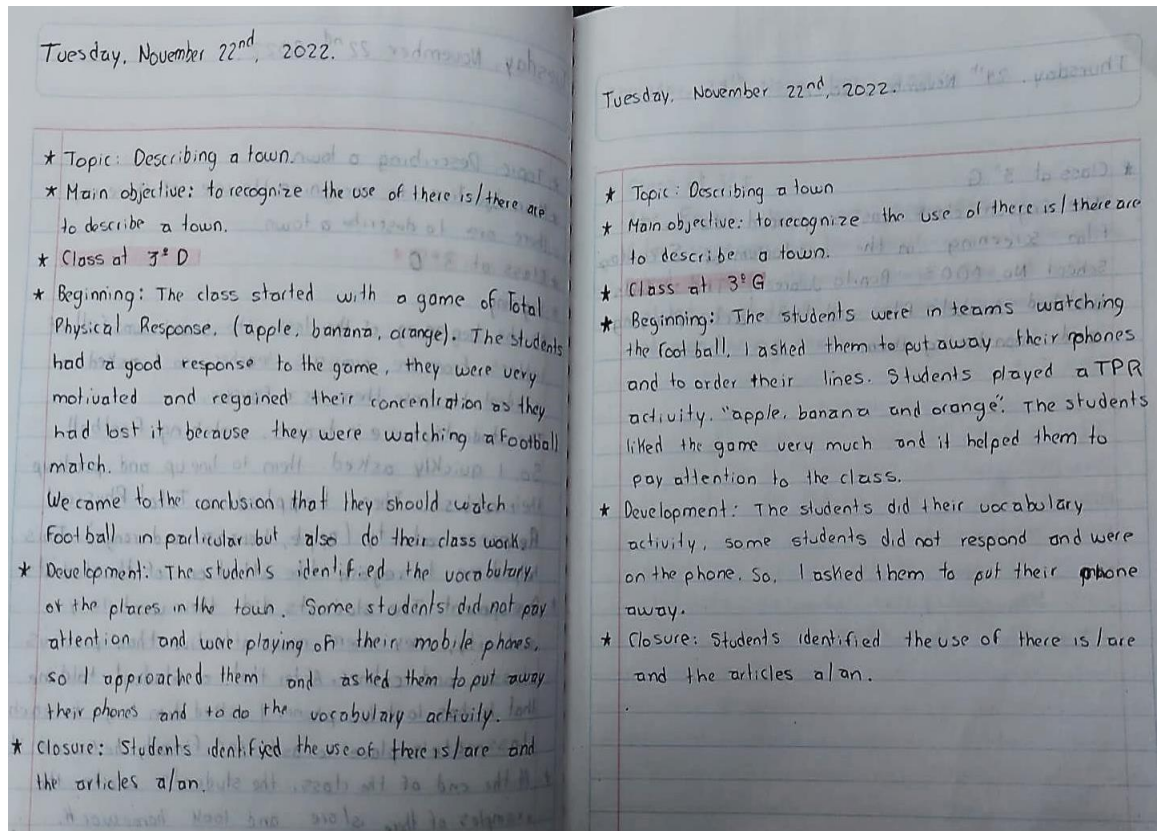 Tuesday, November 22nd, 2022.
★ Topic: Describing a town.
★ Main objective: to recognize the use of there is/there are
to describe a town.
★ Class at 3° D
★ Beginning: The class started with a game of Total
Physical Response. (apple, banana, orange). The students
had a good response to the game, they were very
motivated and regained their concentration as they
had lost it because they were watching a football
match.
We came to the conclusion that they should watch
Football in particular but also do their class work.
★ Development: The students identified the vocabulary
of the places in the town. Some students did not pay
attention and were playing on their mobile phones,
so I approached them and asked them to put away
their phones and to do the vocabulary activity.
★ Closure: Students identified the use of there is/are and
the articles a/an.
Tuesday, November 22nd, 2022.
★ Topic: Describing a town
★ Main objective: to recognize the use of there is/there are
to describe a town.
★ Class at 3° G
★ Beginning: The students were in teams watching
the foot ball, I asked them to put away their phones
and to order their lines. Students played a TPR
activity. "apple, banana and orange". The students
liked the game very much and it helped them to
pay attention to the class.
★ Development: The students did their vocabulary
activity, some students did not respond and were
on the phone. So, I asked them to put their phone
away.
★ Closure: Students identified the use of there is/are
and the articles a/an.